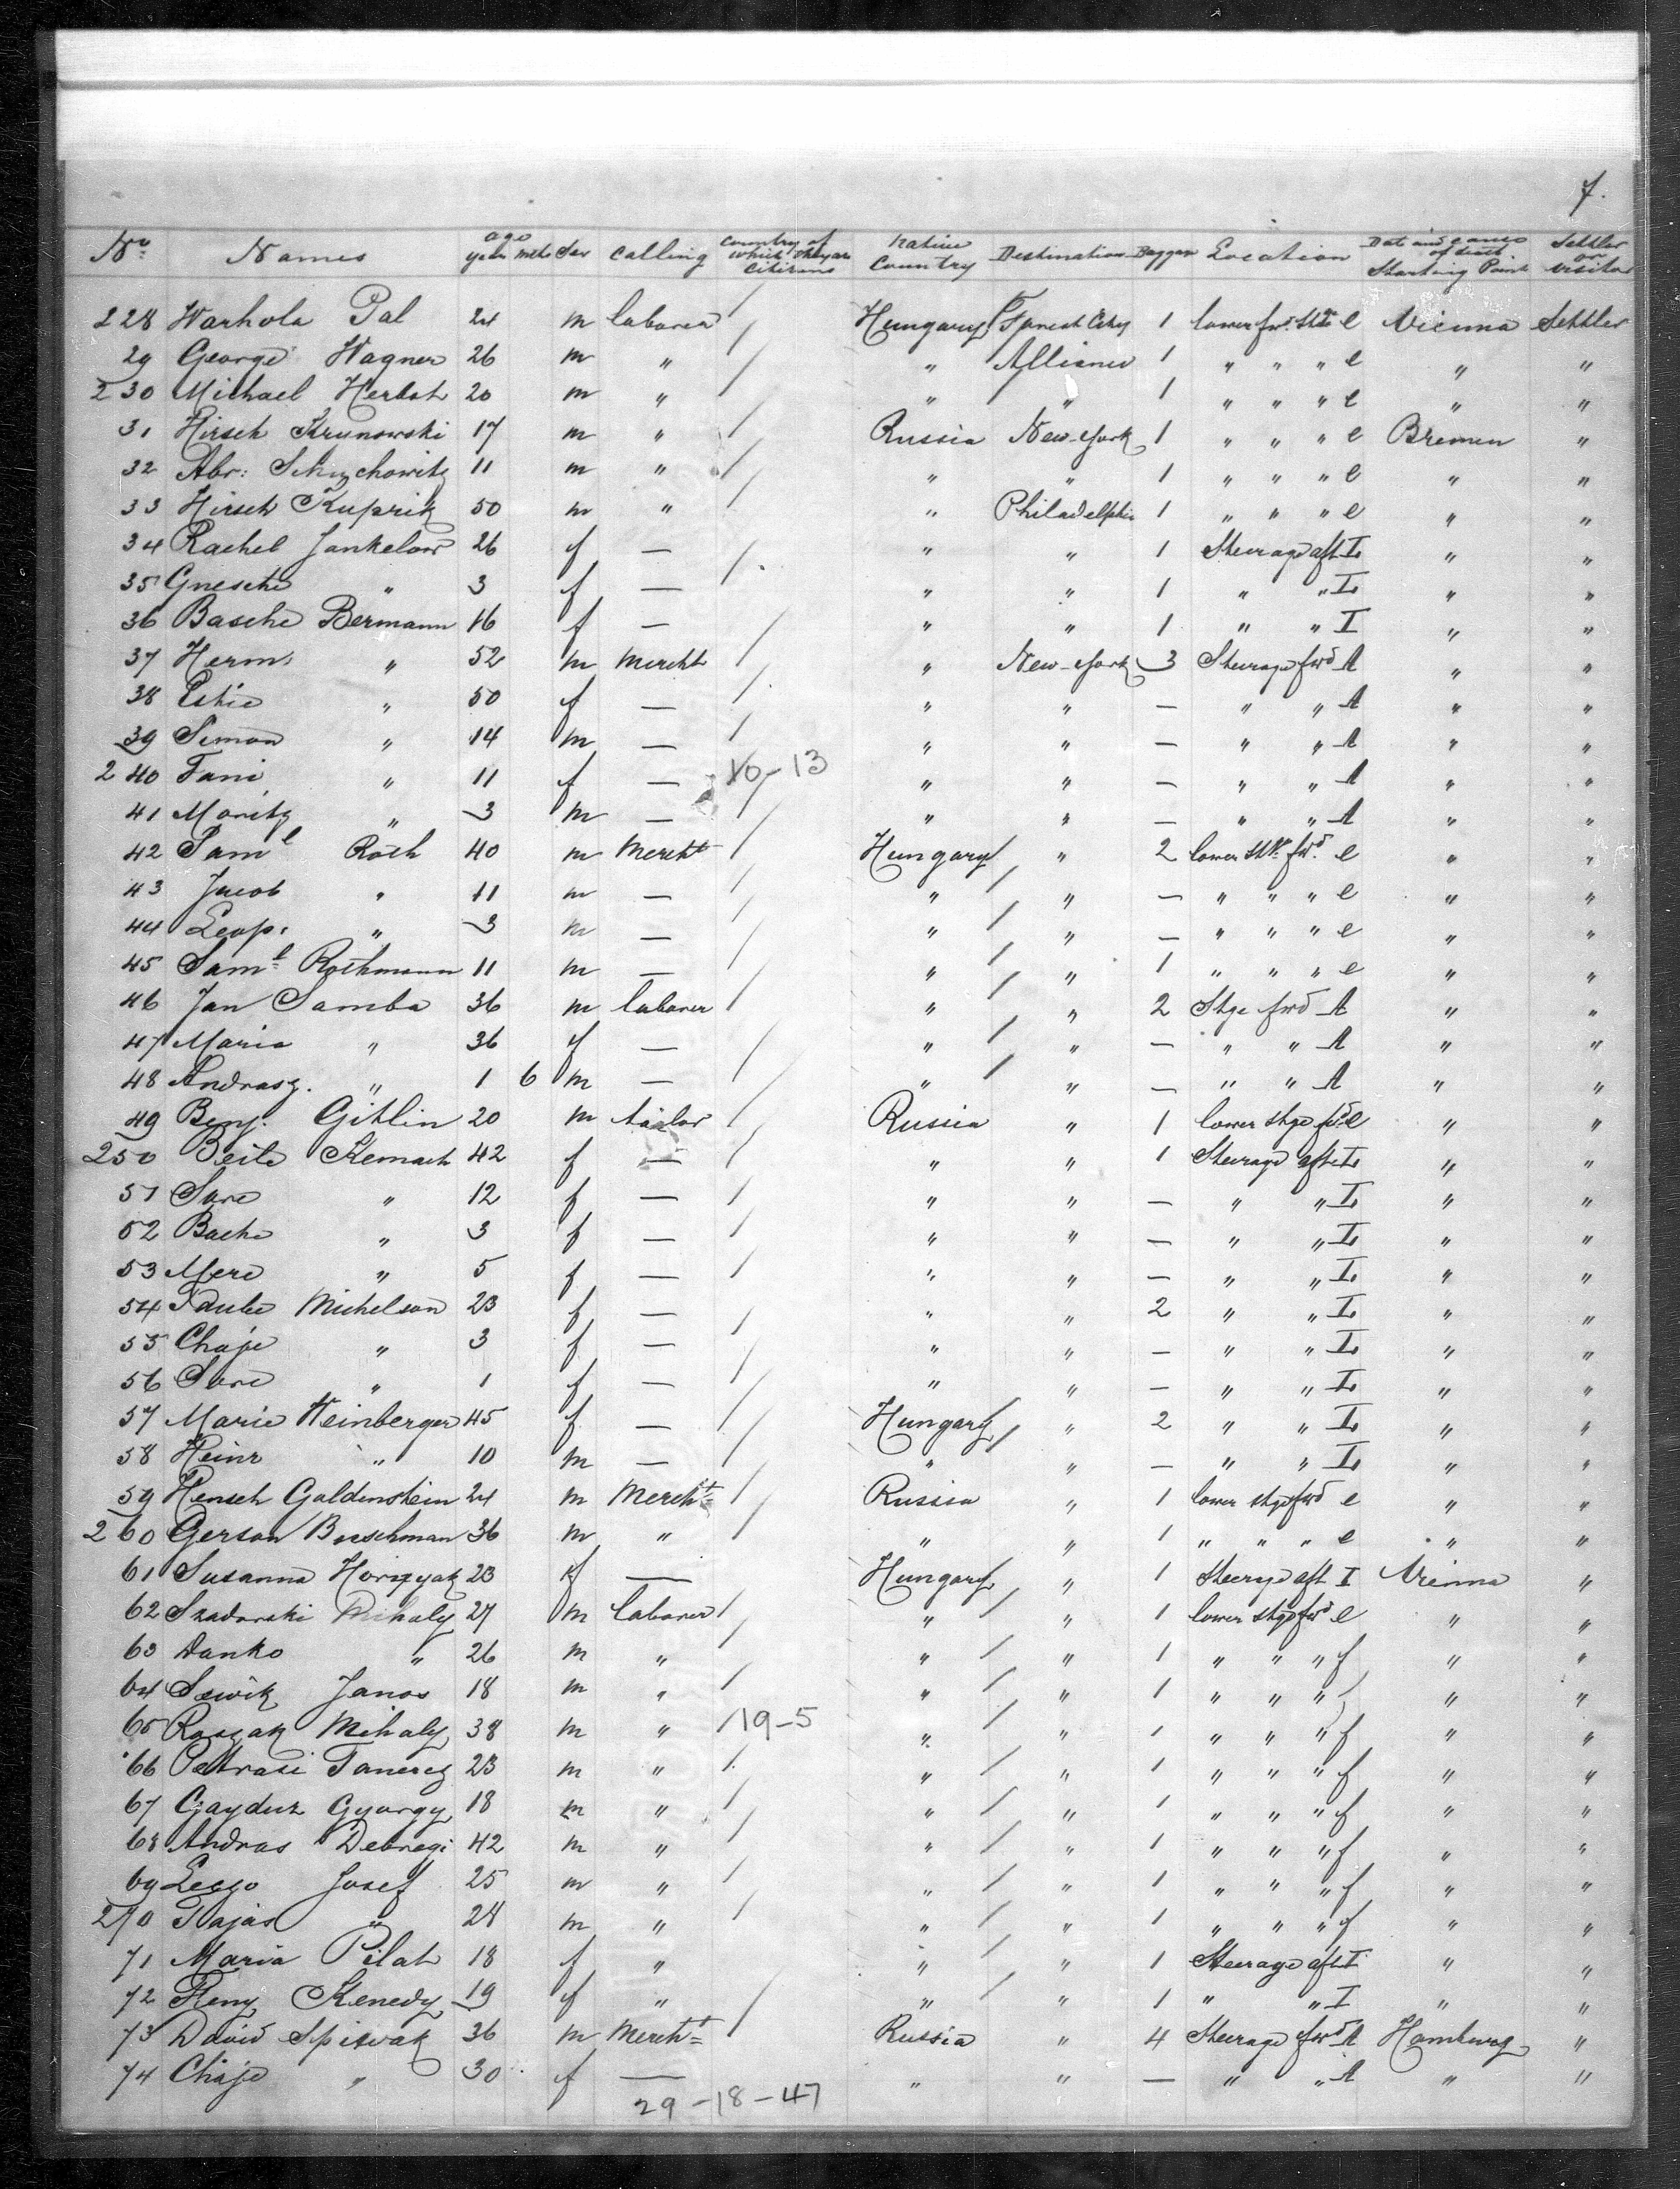 7.
No. Names age year mth Sex Calling Country of which they are Citizens Native Country Destination Baggage Location Date and cause of death Starting Point Settler or visitor
228 Warhola Pal 24 m laborer / Hungary Forest City 1 lower fwd e Vienna Settler
29 George Wagner 26 m " / " 1 " " " e " "
230 Michael Herbst 20 m " / " " 1 " " " e " "
31 Hirsch Krunowski 17 m " / Russia New-York 1 " " " e Bremen "
32 Abr: 11 m " / " " 1 " " " e " "
33 Hirsch Kuprik 50 m " / " Philadelphia 1 " " " e " "
34 Rachel Jankelow 26 f — / " " 1 Steerage aft I " "
35 Gnesche " 3 f — " " 1 " " I " "
36 Basche Bermann 16 f — / " " 1 " " I " "
37 Herm: " 52 m Mercht / " New-York 3 Steerage fwd A " "
38 Estie " 50 f — / " " — " " A " "
39 Simon " 14 m — / " " — " " A " "
240 Fani " 11 f — 10-13 " " — " " A " "
41 Moritz " 3 m — / " " — " " A " "
42 Saml Roth 40 m Mercht / Hungary " 2 lower fwd. e " "
43 Jacob " 11 m — / " / " — " " " e " "
44 Leop: " 3 m — / " / " — " " " e " "
45 Saml Rothmann 11 m — / " / " 1 " " " e " "
46 Jan Samba 36 m laborer / " / " 2 Stge fwd A " "
47 Maria " 36 f — / " / " — " " A " "
48 Andrasz. " 1 6 m — / " / " — " " A " "
49 Benj. Gitlin 20 m tailor / Russia " 1 lower stge fwd e " "
250 Beile Kemach 42 f — / " " 1 Steerage aft I " "
51 Sare " 12 f — / " " — " " I " "
52 Bache " 3 f — / " " — " " I " "
53 Mere " 5 f — / " " — " " I " "
54 Taube Michelson 23 f — / " " 2 " " I " "
55 Chaje " 3 f — / " " — " " I " "
56 Sare " 1 f — / " " — " " I " "
57 Marie Weinberger 45 f — / Hungary / " 2 " " I " "
58 Heinr " 10 m — / " " — " " I " "
59 Hensch Goldenstein 24 m Mercht / Russia " 1 lower stge fwd e " "
260 Gerson Borschman 36 m " / " " 1 " " " e " "
61 Susanna 23 f — Hungary " 1 Steerage aft I Vienna "
62 Szadarski Mihaly 27 m laborer / " / " 1 lower stge fwd e " "
63 Danko " 26 m " / " / " 1 " " " f " "
64 Janos 18 m " / " / " 1 " " " " "
65 Roszak Mihaly 38 m " / 19-5 " / " 1 " " " f " "
66 Petrasi 23 m " / " / " 1 " " " f " "
67 Gyorgy 18 m " / " / " 1 " " " f " "
68 Andras Debregi 42 m " / " / " 1 " " " f " "
69 Josef 25 m " / " / " 1 " " " f " "
270 " 24 m " / " / " 1 " " " f " "
71 Maria Pilat 18 f " " / " 1 Steerage aft I " "
72 Kenedy 19 f " " / " 1 " " I " "
73 David Spiewak 36 m Mercht / Russia " 4 Steerage fwd A Hamburg "
74 Chaje " 30 f — " " — " " A " "
29-18-47